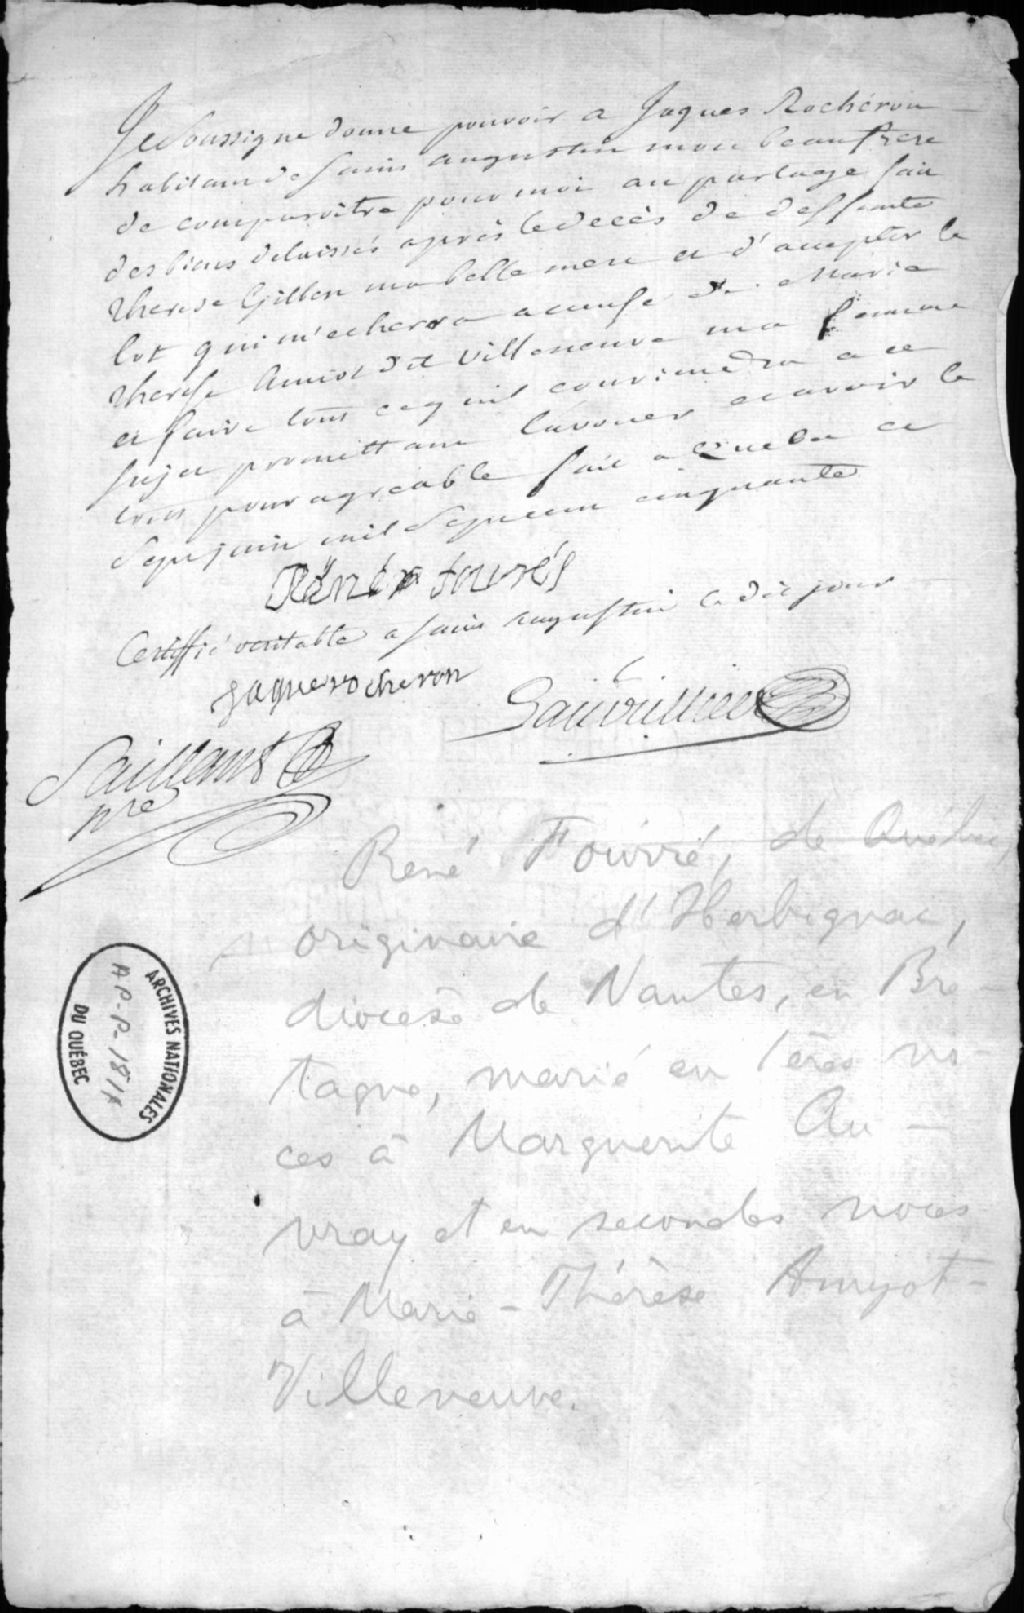 Je Soussigne donne pouvoir a Jaques Rocheron
habitant de saint augustin mon beaufrere
de comparoitre pour moi au partage fait
des biens delaissés après le decès de deffunte
therese Gillon ma belle mere et d'accepter le
lot qui m'echerra a cause de Marie
therese Amiot dit Villeneuve ma femme
et faire tout ce qu'il conviendra a ce
sujet promettant l'avouer et avoir le
tout pour agréable fait a Quebec ce
Sept juin mil Sept cent cinquante
Réné fourés
Certiffié veritable a saint augustin le dit jour
jaque rocheron
Sauvuillier
Saillant
ptre
René Fourré, de Québec,
originaire d'Herbignac,
diocèse de Nantes, en Bre-
tagne, marié en 1ères no-
ces à Marguerite Au-
vray et en secondes noces
à Marie-Thérèse Amyot-
Villeneuve.
ARCHIVES NATIONALES
DU QUÉBEC